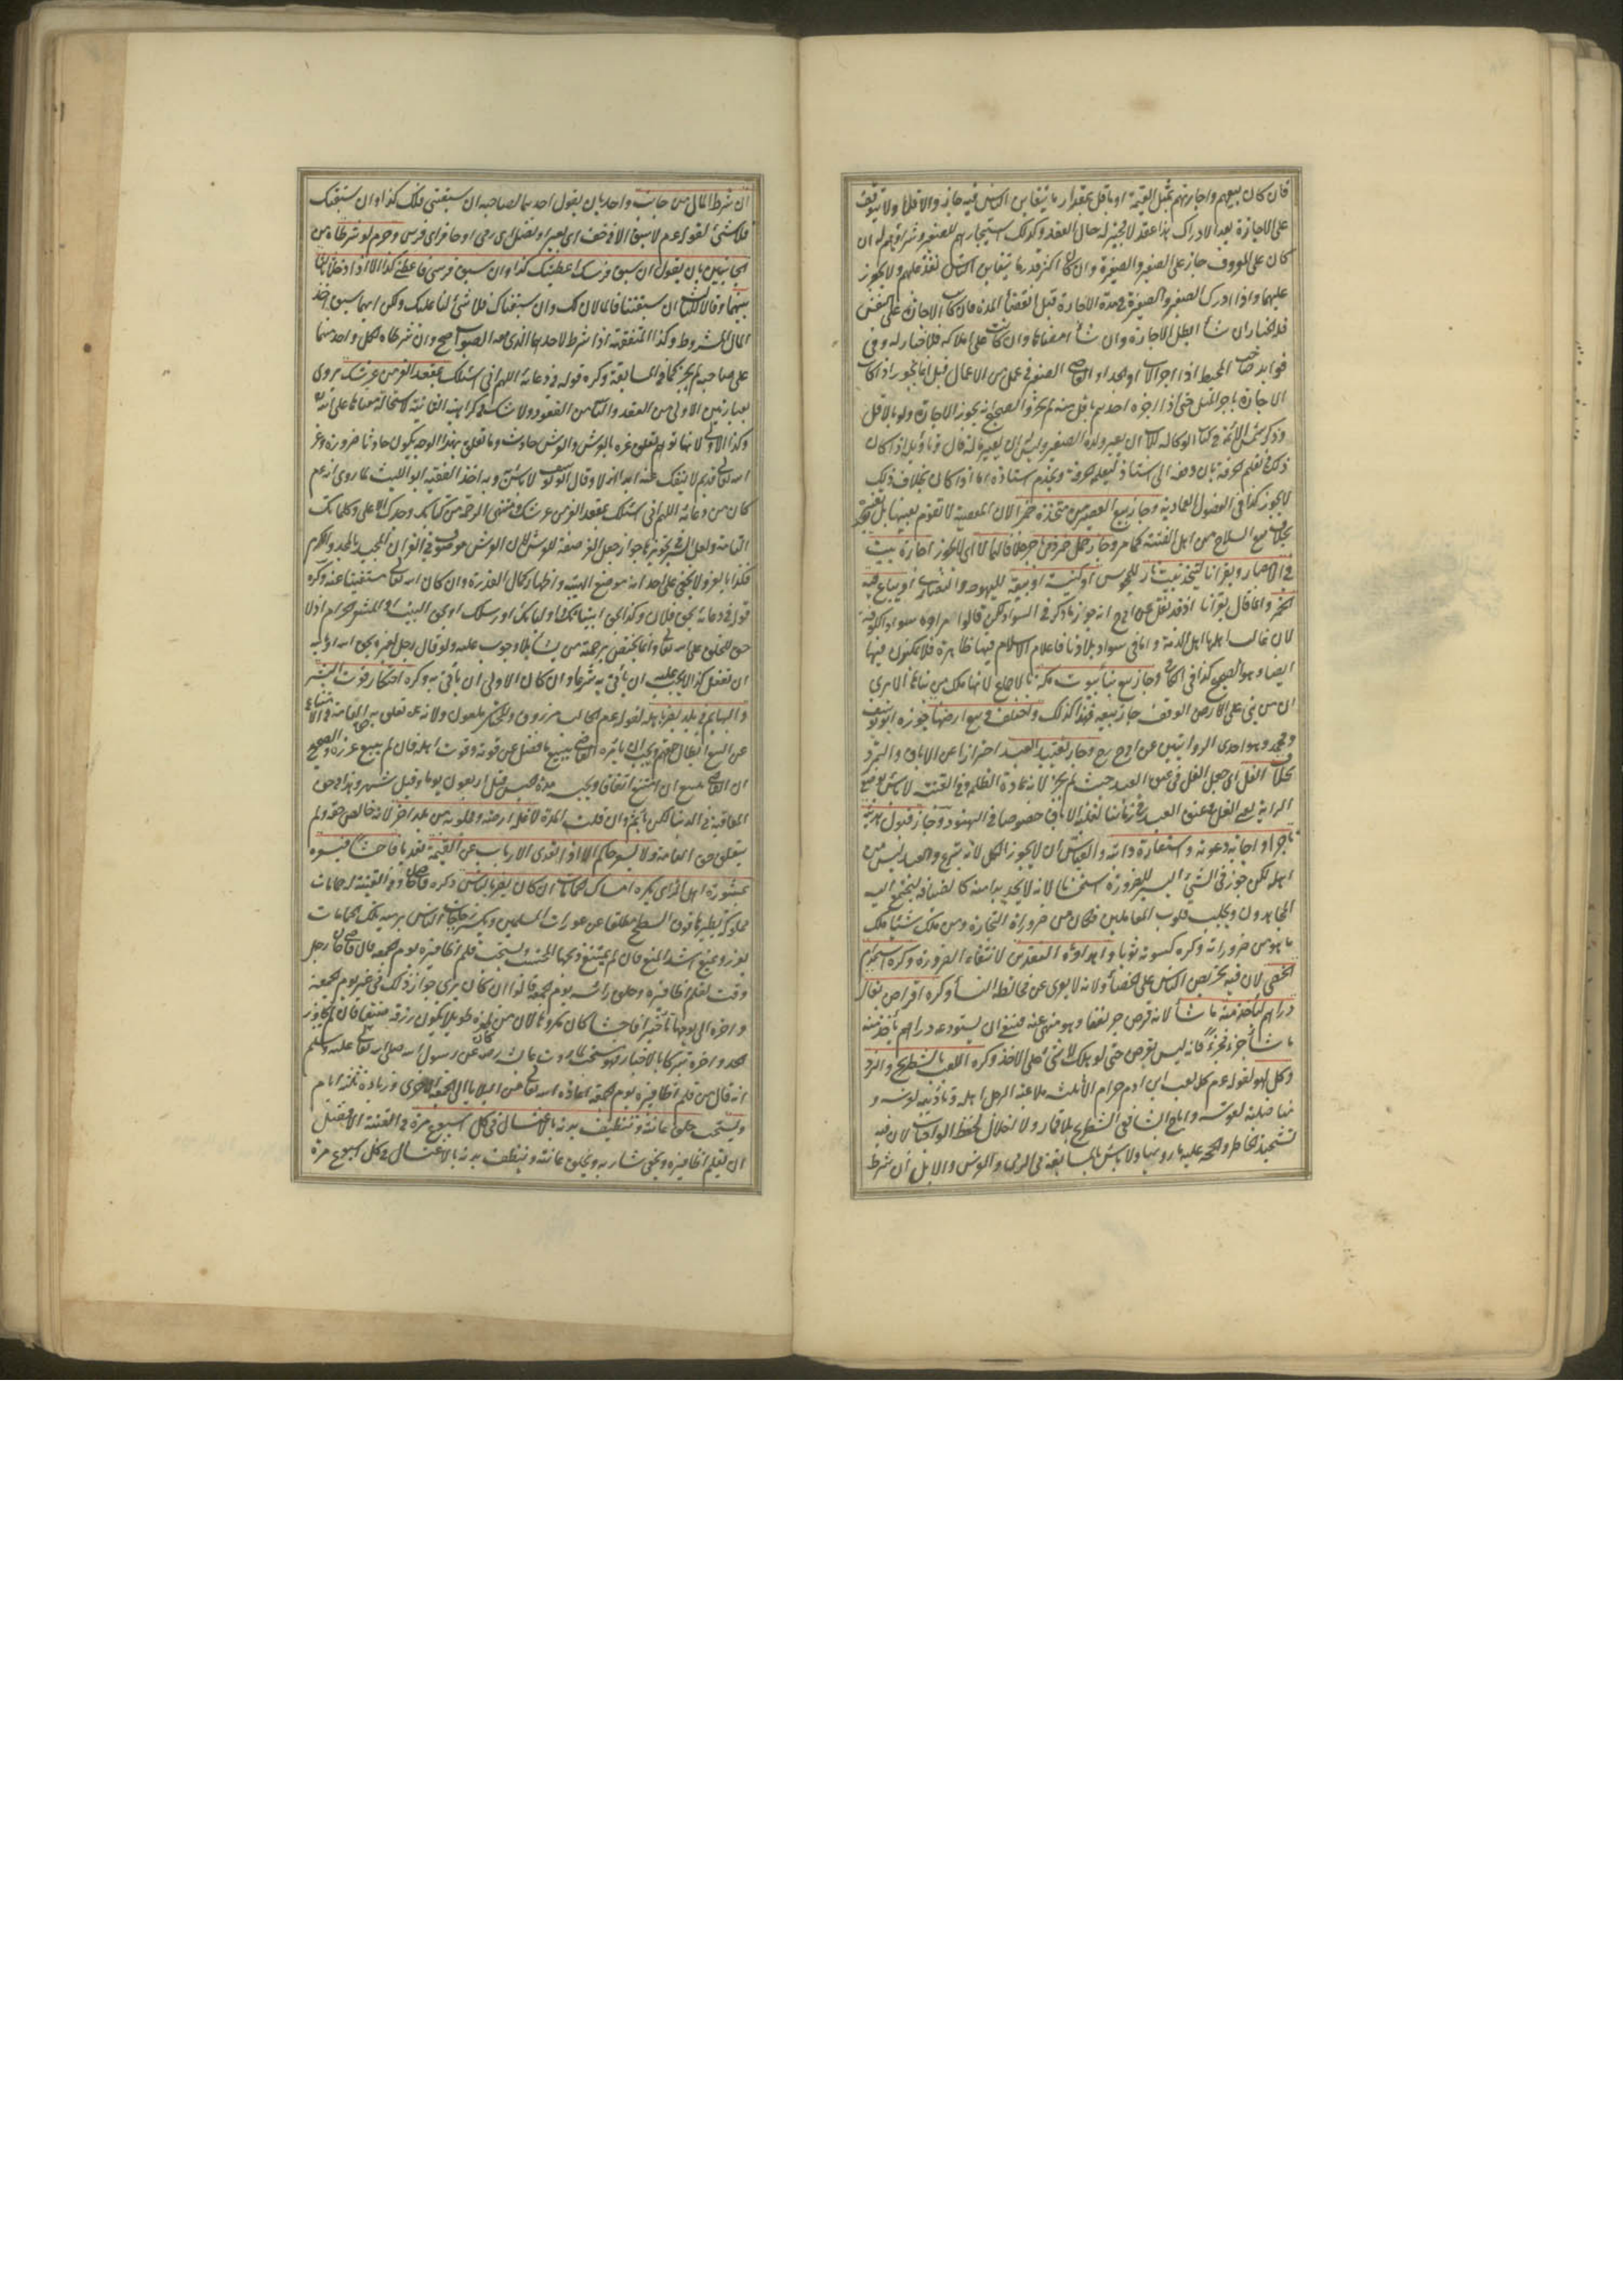 فان كان بيعهم واجارتهم بمثل القيمة او باقل بمقدار ما يتغابن الناس فيه جاز والا فلا ولا يتوقف
على الاجازة بعد الادراك لان هذا عقد لا مجيز له حال العقد وكذلك استيجارهم للصغير وشراؤهم له ان
كان على المعروف جاز على الصغير والصغيرة وان كان اكثر قدر ما يتغابن الناس نفذ عليهم ولا يجوز
عليهما واذا ادرك الصغير والصغيرة في مدة الاجارة قبل انقضاء المدة فان كانت الاجارة على النفس
فله الخيار ان شاء ابطل الاجارة وان شاء امضاها وان كانت على املاكه فلا خيار له وفي
فوائد صاحب المحيط اذا اجر الاب او الجد او القاضي الصغير في عمل من الاعمال قيل انما يجوز اذا كانت
الاجارة باجر المثل حتى اذا اجره احدهم باقل منه لم يجز والصحيح انه يجوز الاجارة ولو بالاقل
وذكر شمس الائمة في كتاب الوكالة للاب ان يعير ولده الصغير وليس له ان يعير ماله قال وتأويله اذا كان
ذلك في تعلم الحرفة بان دفعه الى استاذ ليعلمه الحرفة ويخدم استاذه اما اذا كان بخلاف ذلك
لا يجوز كذا في الفصول العمادية وجاز بيع العصير من متخذه خمرا لان المعصية لا تقوم بعينها بل بعد تغيره
بخلاف بيع السلاح من اهل الفتنة كما مر وجاز حمل خمر ذمي باجر خلافا لهما لا اي لا يجوز اجارة بيت
في الامصار وبقرانا ليتخذ بيت نار للمجوس او كنيسة او بيعة لليهود والنصارى او يباع فيه
الخمر وانما قال بقرانا اذ قد نقل عن ابي ح انه جوز ما ذكر في السواد لكن قالوا مراده سواد الكوفة
لان غالب اهلها اهل الذمة واما في سواد بلادنا فاعلام الاسلام فيها ظاهرة فلا يمكنون فيها
ايضا وهو الصحيح كذا في الكافي وجاز بيع بناء بيوت مكة بالاجماع لانها ملك من بناها الا يرى
ان من بنى على الارض الوقف جاز بيعه فهذا كذلك واختلف في بيع ارضها جوزه ابو يوسف
ومحمد وهو احدى الروايتين عن ابي ح رح وجاز تقييد العبد احترازا عن الاباق والتمرد
بخلاف الغل اي جعل الغل في عنق العبد حيث لم يجز لانه عادة الظلمة وفي القنية لا بأس بوضع
الراية يعني الغل في عنق العبد في زماننا لغلبة الاباق خصوصا في الهنود وجاز قبول هديته
تاجرا واجابة دعوته واستعارة دابته والقياس ان لا يجوز الكل لانه تبرع والعبد ليس من
اهله لكن جوز في الشيء اليسير للضرورة استحسانا لانه لا يجد بدا منه كالضيافة ليجتمع اليه
المجاهزون ويجلب قلوب المعاملين فكان من ضرورات التجارة ومن ملك شيئا ملك
ما هو من ضروراته وكره كسوته ثوبا واهداؤه النقدين لانتفاء الضرورة وكره استخدام
الخصي لان فيه تحريض الناس على الخصاء ولانه لا يعرى عن مخالطة النساء وكره اقراض بقال
دراهم ليأخذ منه ما شاء لانه قرض جر نفعا وهو منهي عنه فينبغي ان يستودعه دراهم يأخذ منه
ما شاء جزء فجزء فانه ليس بقرض حتى لو هلك لا شيء على الاخذ وكره اللعب بالشطرنج والنرد
وكل لهو لقوله عم كل لعب ابن ادم حرام الا ثلث ملاعبة الرجل اهله وتأديبه لفرسه و
مناضلته لقوسه واباح الشافعي الشطرنج بلا قمار ولا اخلال بحفظ الواجبات لان فيه
تشحيذ الخاطر والحجة عليه ما روينا ولا بأس بالمسابقة في الرمي والفرس والابل ان شرط
ان شرط المال من جانب واحد بان يقول احدهما لصاحبه ان سبقتني فلك كذا وان سبقتك
فلا شيء لقوله عم لا سبق الا في خف اي بعير او نصل اي رمي او حافر اي فرس وحرم لو شرطاه من
الجانبين بان يقول ان سبق فرسك اعطيتك كذا وان سبق فرسي فاعطني كذا الا اذا ادخلا ثالثا
بينهما وقالا للثالث ان سبقتنا فالمالان لك وان سبقناك فلا شيء لنا عليك ولكن ايهما سبق اخذ
المال المشروط وكذا المتفقهة اذا شرط لاحدهما الذي معه الصواب صح وان شرطاه لكل واحد منهما
على صاحبه لم يجز كما في المسابقة وكره قوله في دعائه اللهم اني اسئلك بمقعد العز من عرشك يروى
بعبارتين الاولى من العقد والثانية من القعود ولا شك في كراهية الثانية لاستحالة معناها على الله تعالى
وكذا الاولى لانها توهم تعلق عزه بالعرش والعرش حادث وما تعلق بهذا الوجه يكون حادثا ضرورة وعز
الله تعالى قديم لا ينفك عنه ازلا وابدا وقال ابو يوسف لا بأس به وبه اخذ الفقيه ابو الليث لما روى انه عم
كان من دعائه اللهم اني اسئلك بمقعد العز من عرشك ومنتهى الرحمة من كتابك وجدك الاعلى وكلماتك
التامة ولعل السر في تجويزها جواز جعل العز صفة للعرش لان العرش موصوف في القران بالمجد والكرم
فكذا بالعز ولا يخفى على احد انه موضع الهيبة واظهار كمال القدرة وان كان الله تعالى مستغنيا عنه وكره
قوله في دعائه بحق فلان وكذا بحق انبيائك واوليائك او رسلك او بحق البيت او المشعر الحرام اذ لا
حق للخلق على الله تعالى وانما يختص برحمته من يشاء بلا وجوب عليه ولو قال رجل لغيره بحق الله او بالله
ان تفعل كذا لا يجب عليه ان يأتي به شرعا وان كان الاولى ان يأتي به وكره احتكار قوت البشر
والبهايم في بلد يضر باهله لقوله عم الجالب مرزوق والمحتكر ملعون ولانه تعلق به حق العامة وفي الامتناع
عن البيع ابطال حقهم ويجب ان يأمره القاضي ببيع ما فضل عن قوته وقوت اهله فان لم يبع عزره والصحيح
ان القاضي يبيع ان امتنع اتفاقا ومدة الحبس قيل اربعون يوما وقيل شهر وهذا في حق
المعاقبة في الدنيا لكن يأثم وان قلت المدة لا غلة ارضه ومجلوبه من بلد اخر لانه خالص حقه ولم
يتعلق حق العامة ولا يسعر حاكم الا اذا تعدى الارباب عن القيمة تعديا فاحشا فيسعره
بمشورة اهل الرأي يكره امساك الحمامات ان كان يضر بالناس ذكره قاضيخان وفي القنية له حمامات
مملوكة يطيرها فوق السطح مطلعا على عورات المسلمين ويكسر زجاجات الناس برميه تلك الحمامات
يعزر ويمنع اشد المنع فان لم يمتنع ذبحها المحتسب ويستحب قلم اظافيره يوم الجمعة قال قاضيخان رجل
وقت لقلم اظافيره وحلق رأسه يوم الجمعة قالوا ان كان يرى جواز ذلك في غير يوم الجمعة
واخره الى يومها تأخيرا فاحشا كان مكروها لان من كان ظفره طويلا يكون رزقه ضيقا فان لم يجاوز
الحد واخره تبركا بالاخبار فهو مستحب لما روت عائشة رضه عن رسول الله صلى الله تعالى عليه وسلم
انه قال من قلم اظافيره يوم الجمعة اعاذه الله تعالى من البلايا الى الجمعة الاخرى وزيادة ثلثة ايام
ويستحب حلق عانته وتنظيف بدنه بالاغتسال في كل اسبوع مرة في القنية الافضل
ان يقلم اظافيره ويحفي شاربه ويحلق عانته وينظف بدنه بالاغتسال في كل اسبوع مرة